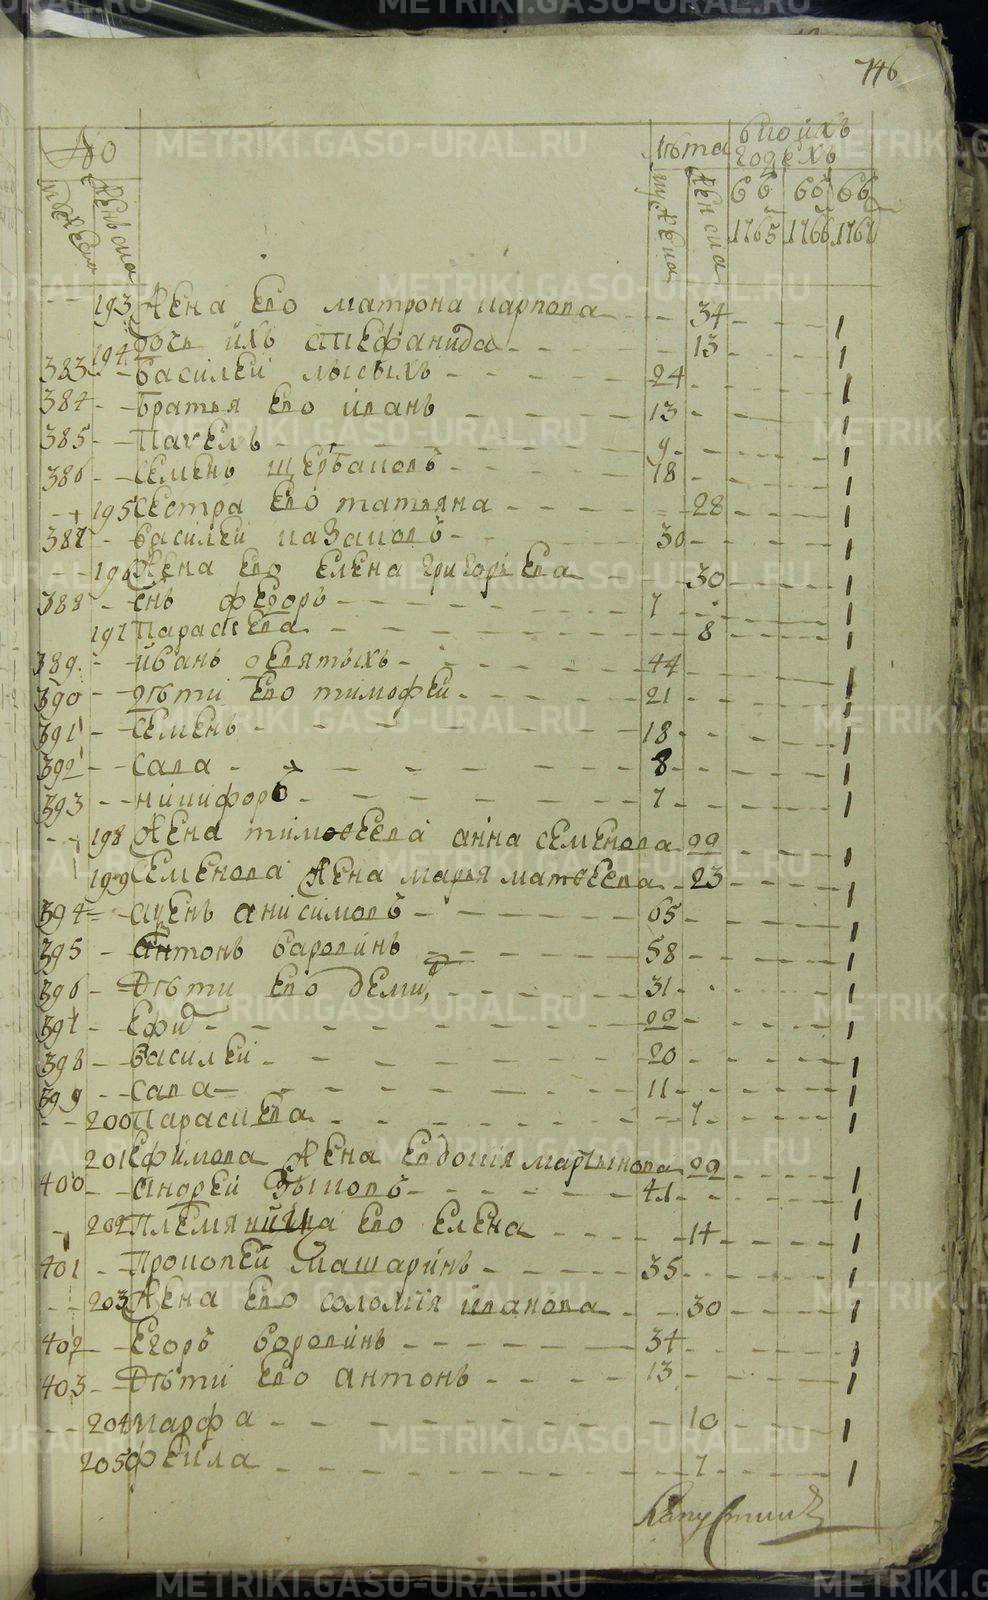 746
№
Лѣта
в коихъ годехъ
мужеска
женска
мужеска
женска
въ 1765
въ 1766
въ 1767
193 Жена ево матрона карпова 34 1
194 дочь ихъ степанида 13 1
383 василей лысыхъ 24 1
384 братья ево иванъ 13 1
385 павелъ 9 1
386 семенъ щербаковъ 18 1
195 сестра ево татьяна 28 1
387 василей казаковъ 30 1
196 Жена ево елена григорьева 30 1
388 сынъ федоръ 7 1
197 парасковья 8 1
389 иванъ девятыхъ 44 1
390 дѣти ево тимофей 21 1
391 семенъ 18 1
392 сава 8 1
393 никифоръ 7 1
198 Жена тимофеева анна семенова 22 1
199 семенова жена марья матвеева 23 1
394 анисимовъ 65 1
395 антонъ бародинъ 58 1
396 Дѣти ево деми, 31 1
397 Ефим 22 1
398 василей 20 1
399 сава 11 1
200 Парасковья 7 1
201 Ефимова жена евдокия мартынова 22 1
400 андрей быковъ 41 1
202 племянница ево елена 14 1
401 прокопей машаринъ 35 1
203 Жена ево соломия иванова 30 1
402 Егоръ бородинъ 34 1
403 Дѣти ево антонъ 13 1
204 марфа 10 1
205 фекла 7 1
METRIKI.GASO-URAL.RU